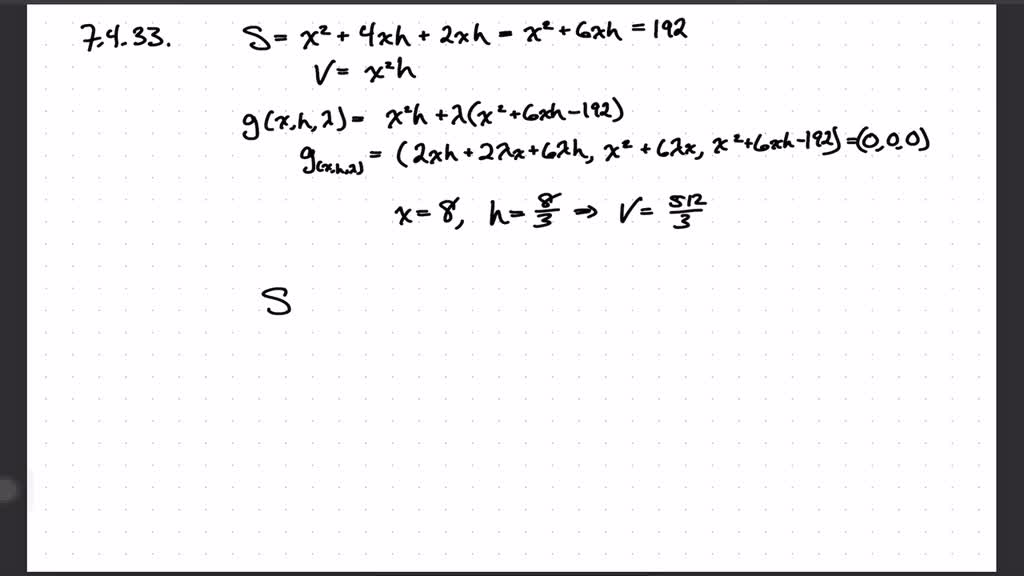 7.4.33. S = x² + 4xh + 2xh = x² + 6xh = 192
V = x²h
g(x,h,λ) = x²h + λ(x² + 6xh - 192)
g(x,h,λ) = (2xh + 2λx + 6λh, x² + 6λx, x² + 6xh - 192) = (0,0,0)
x = 8, h = 8/3 ⇒ V = 512/3
S